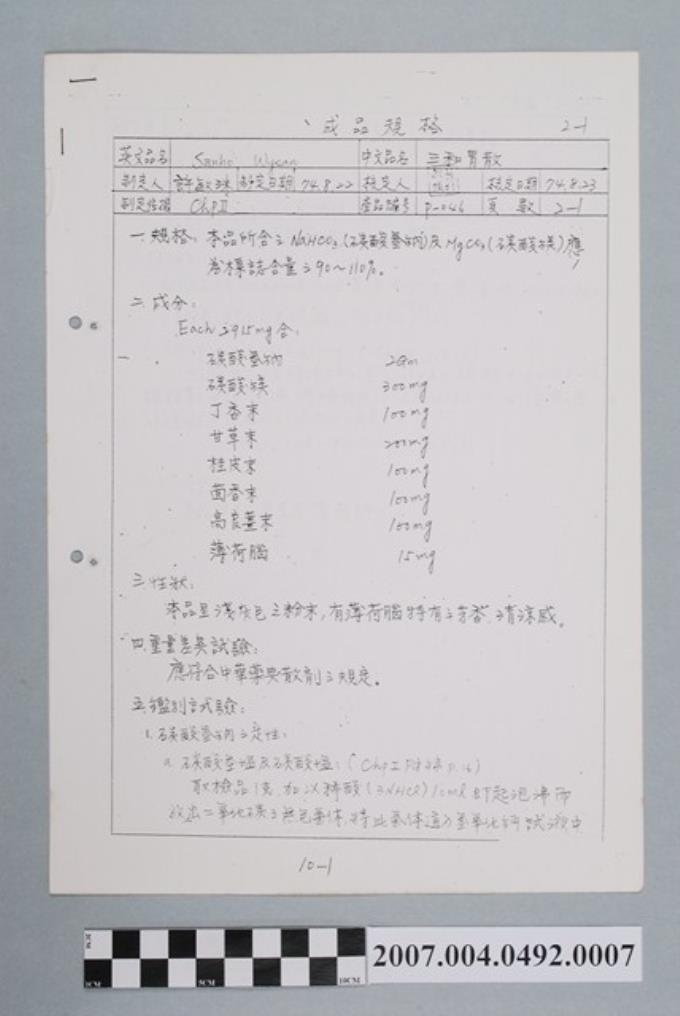 成品規格 2-1
英文品名 Sanho Wycan 中文品名 三和胃散
制定人 制定日期 74.8.22 核定人 核定日期 74.8.23
制定依據 Chp II 產品編號 P-046 頁數 2-1
一.規格: 本品所含之NaHCO3(碳酸氫鈉)及MgCO3(碳酸鎂)應
為標誌含量之90~110%。
二.成分:
Each 2915mg含:
碳酸氫鈉 2Gm
碳酸鎂 300mg
丁香末 100mg
甘草末 200mg
桂皮末 100mg
茴香末 100mg
高良薑末 100mg
薄荷腦 15mg
三.性狀:
本品呈淺灰色之粉末,有薄荷腦特有之芳香、清涼感。
四.重量差異試驗:
應符合中華藥典散劑之規定。
五.鑑別試驗:
1.碳酸氫鈉之定性:
a.碳酸氫鹽及碳酸鹽:(Chp II 附錄 P.16)
取檢品1克加以稀酸(3NHCl)1cml即起泡沸而
放出二氧化碳之無色氣體,將此氣體通入氫氧化鈣試液中
10-1
1CM
1CM 5CM 10CM
2007.004.0492.0007